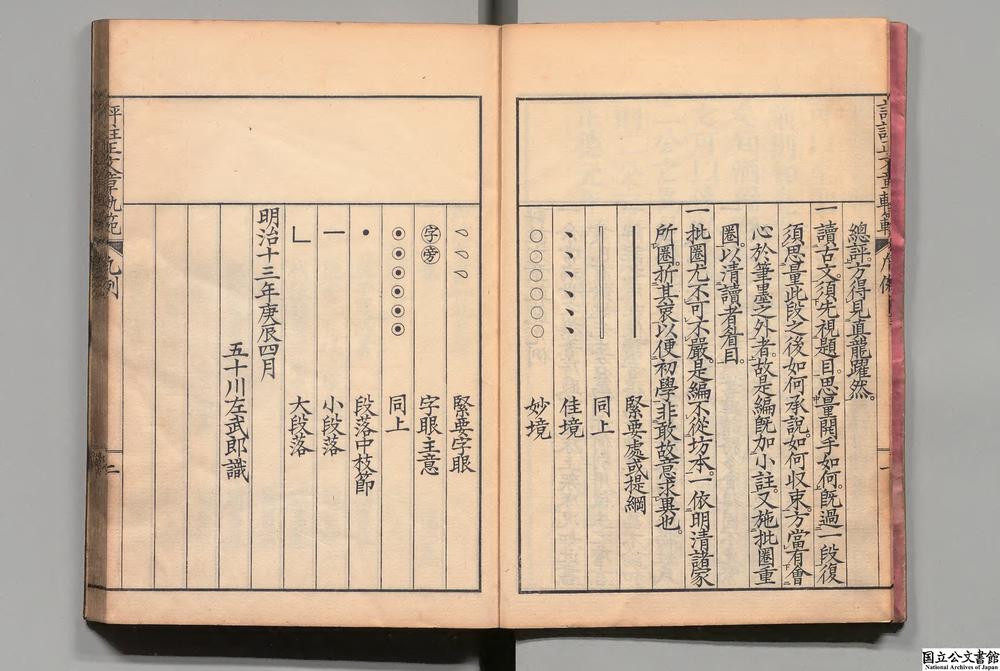 總評。方得見眞龍躍然。
一讀古文。須先視題目。思量開手如何。既過一段復
須思量此段之後如何承說。如何收束。方當有會
心於筆墨之外者。故是編既加小註。又施批圈重
圈。以淸讀者眷目。
一批圈尤不可不嚴。是編不從坊本。一依明淸諸家
所圈。折其衷以便初學。非敢故意求異也。
緊要處或提綱
同上
、、、、、 佳境
○○○○○○ 妙境
緊要字眼
字旁 字眼主意
◉◉◉◉◉◉ 同上
• 段落中枝節
一 小段落
∟ 大段落
明治十三年庚辰四月
五十川左武郎識
評註正文章軌範
凡例
二
国立公文書館
National Archives of Japan